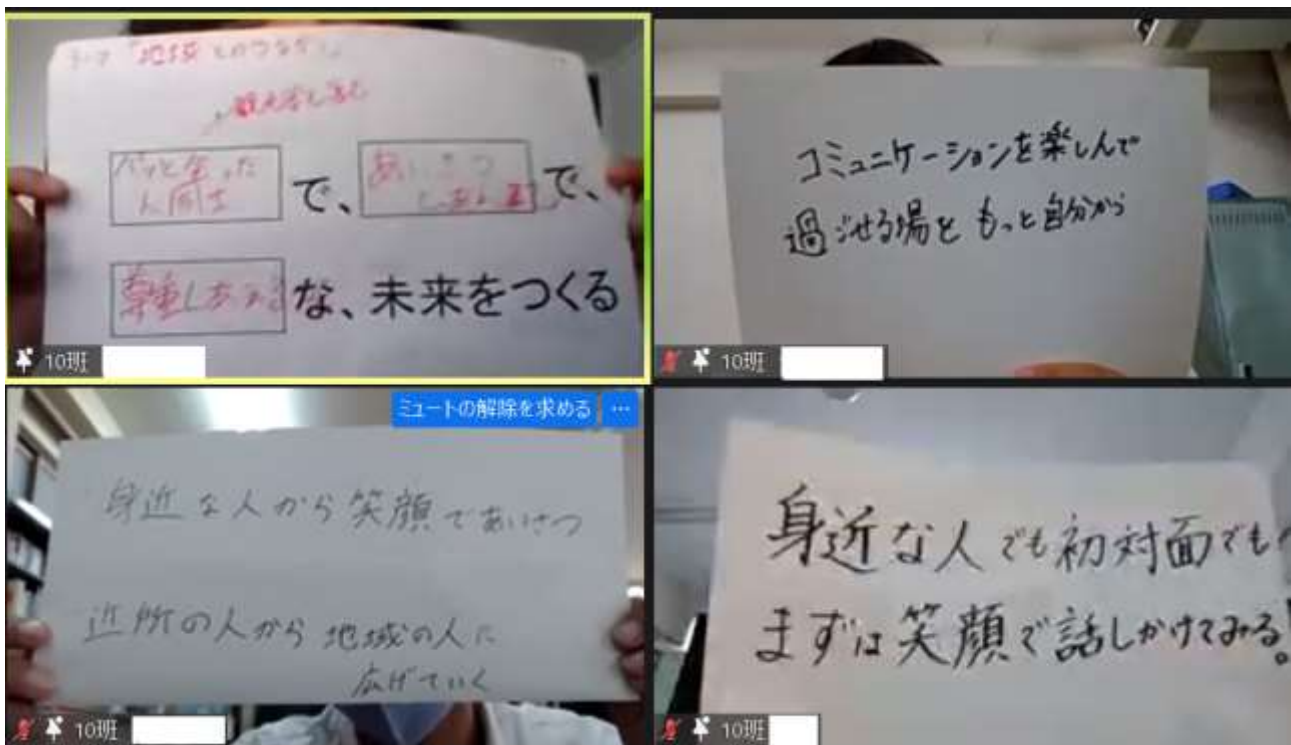 テーマ「地域とのつながり」
観光客も含む
パッと会った
人同士
で、
あいさつ
しあえる
で、
尊重しあえる
な、未来をつくる
10班
コミュニケーションを楽しんで
過ごせる場を もっと自分から
10班
ミュートの解除を求める
…
身近な人から笑顔であいさつ
近所の人から地域の人に
広げていく
10班
身近な人でも初対面でも
まずは笑顔で話しかけてみる。
10班